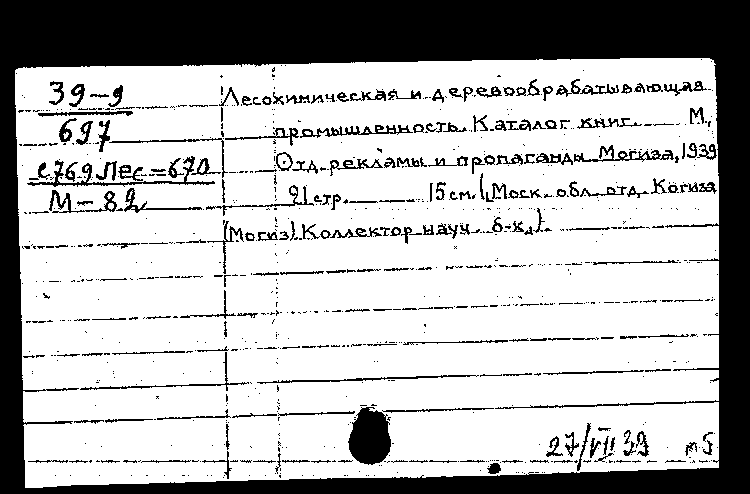 39-9
697
с769 Лес=670
М-82
Лесохимическая и деревообрабатывающая
промышленность. Каталог книг. М.,
Отд. рекламы и пропаганды Могиза, 1939
21 стр. 15 см. („Моск. обл. отд. Когиза
(Могиз). Коллектор науч. б-к„).
27/VII 39 т5